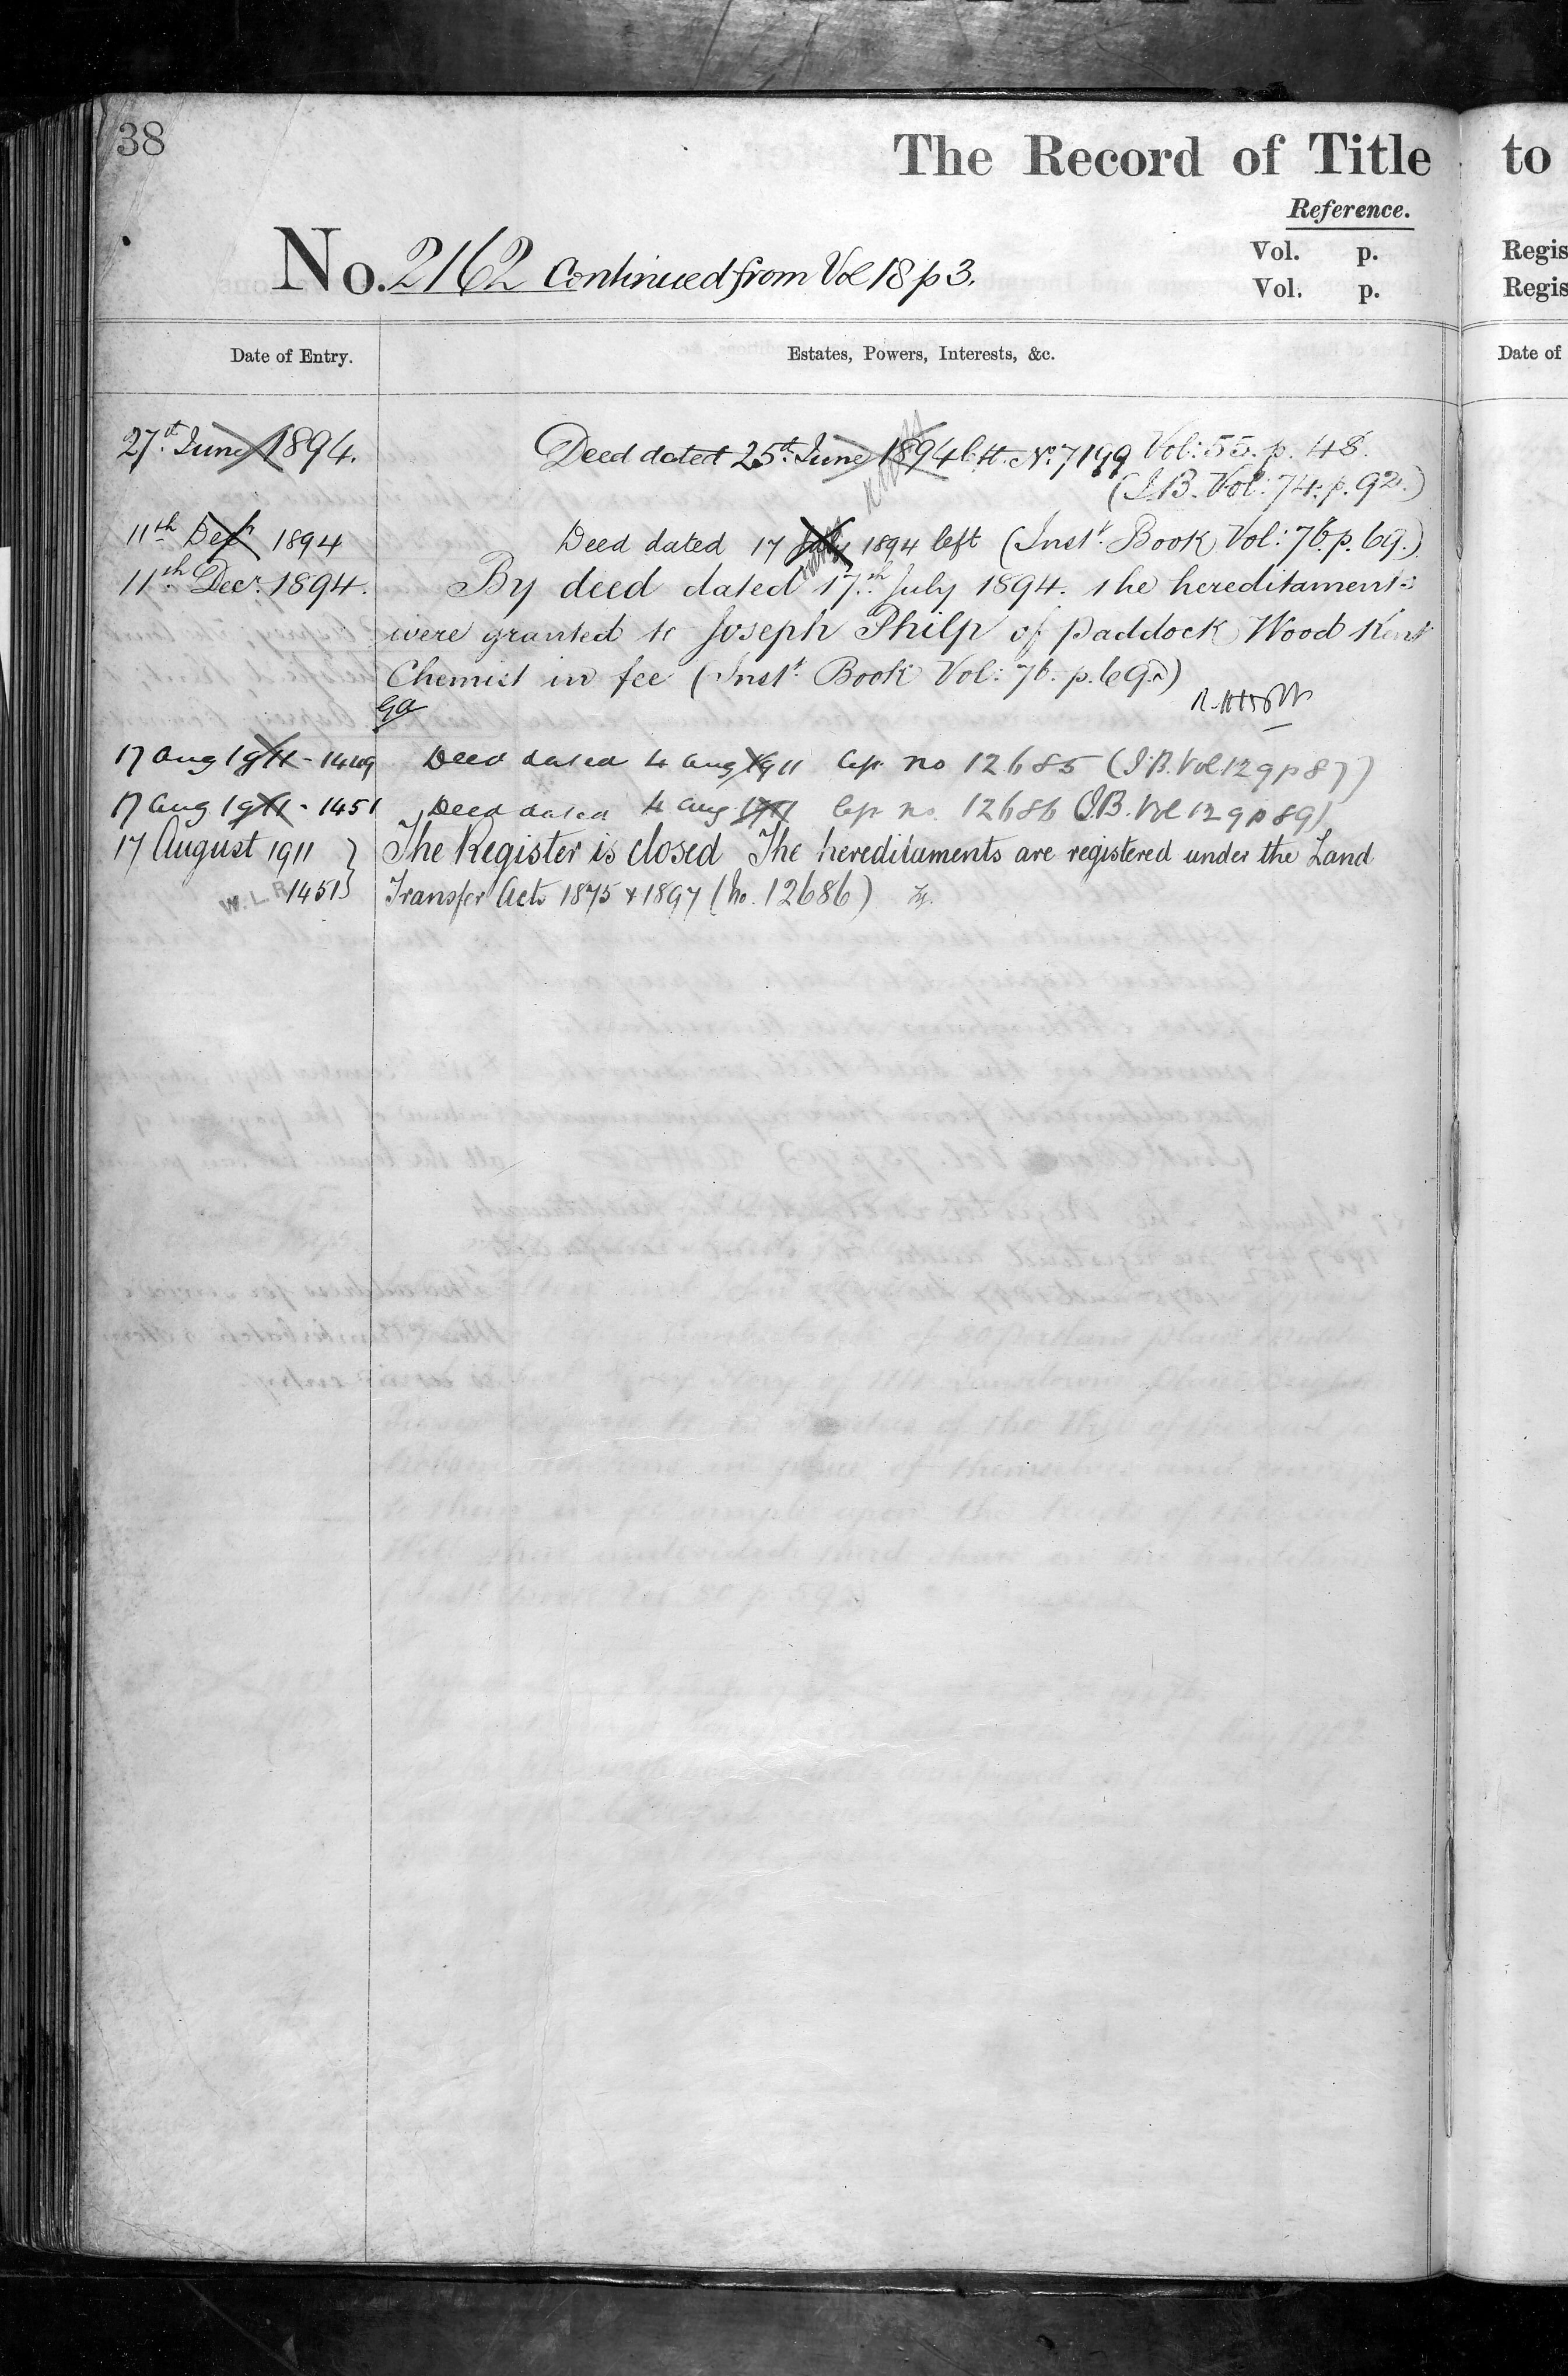 38
The Record of Title
to
Reference.
No. 2162 Continued from Vol 18 p 3.
Vol. p.
Regis
Vol. p.
Regis
Date of Entry.
Estates, Powers, Interests, &c.
Date of
27th June 1894. Deed dated 25th June 1894 left No 7199 Vol: 55. p. 48.
(I.B. Vol: 74. p. 92.)
11th Decr 1894 Deed dated 17 July 1894 left (Inst. Book Vol: 76. p. 69.)
11th Decr. 1894. By deed dated 17th July 1894. the hereditaments
were granted to Joseph Philp of Paddock Wood Kent
Chemist in fee (Inst. Book Vol: 76. p. 69.)
17 Aug 1911 - 1449 Deed dated 4 Aug 1911 left no 12685 (I.B. Vol 129 p 87)
17 Aug 1911 - 1451 Deed dated 4 Aug 1911 left no. 12686 (I.B. Vol 129 p 89)
17 August 1911 The Register is closed The hereditaments are registered under the Land
W.L.R. 1451 Transfer Acts 1875 & 1897 (No. 12686)